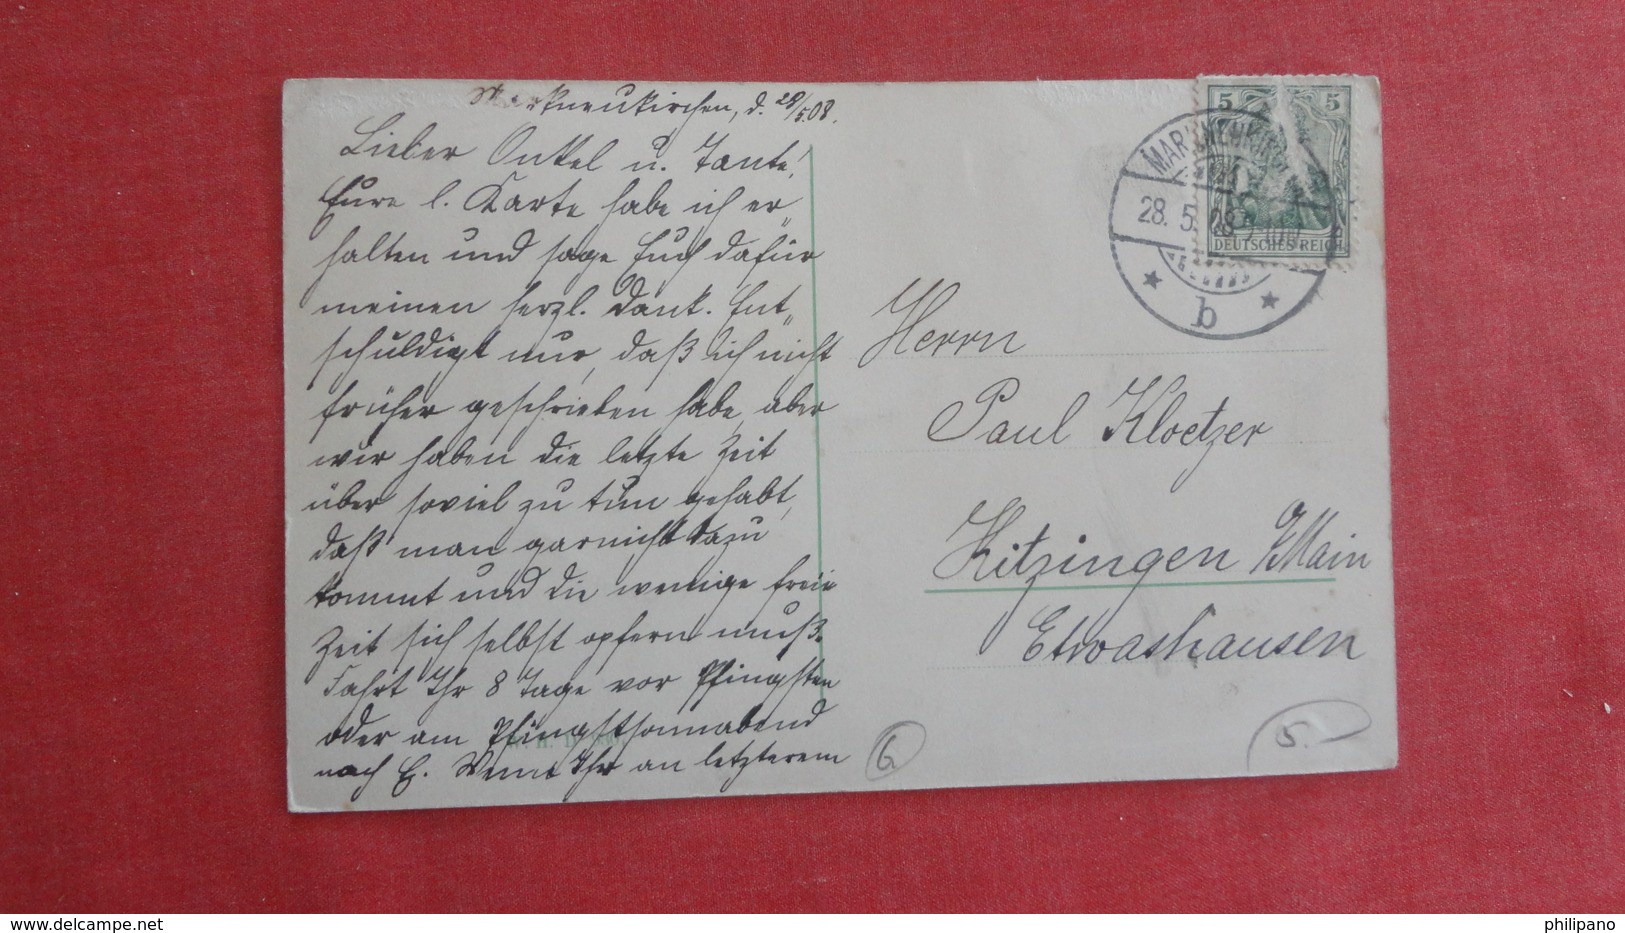 Markneukirchen, d. 28/5.08.
Lieber Onkel u. Tante!
Eure l. Karte habe ich er„
halten und sage Euch dafür
meinen herzl. Dank. Ent„
schuldigt nur, daß ich nicht
früher geschrieben habe, aber
wir haben die letzte Zeit
über soviel zu tun gehabt,
daß man garnicht dazu
kommt und die wenige freie
Zeit sich selbst opfern muß.
Fahrt Ihr 8 Tage vor Pfingsten
oder am Pfingstsonnabend
nach E. Wenn Ihr an letzterem
5 5
DEUTSCHES REICH
MARKNEUKIRCHEN
28. 5.
b
Herrn
Paul Kloetzer
Kitzingen a/Main
Etwashausen
6
5.
philipano